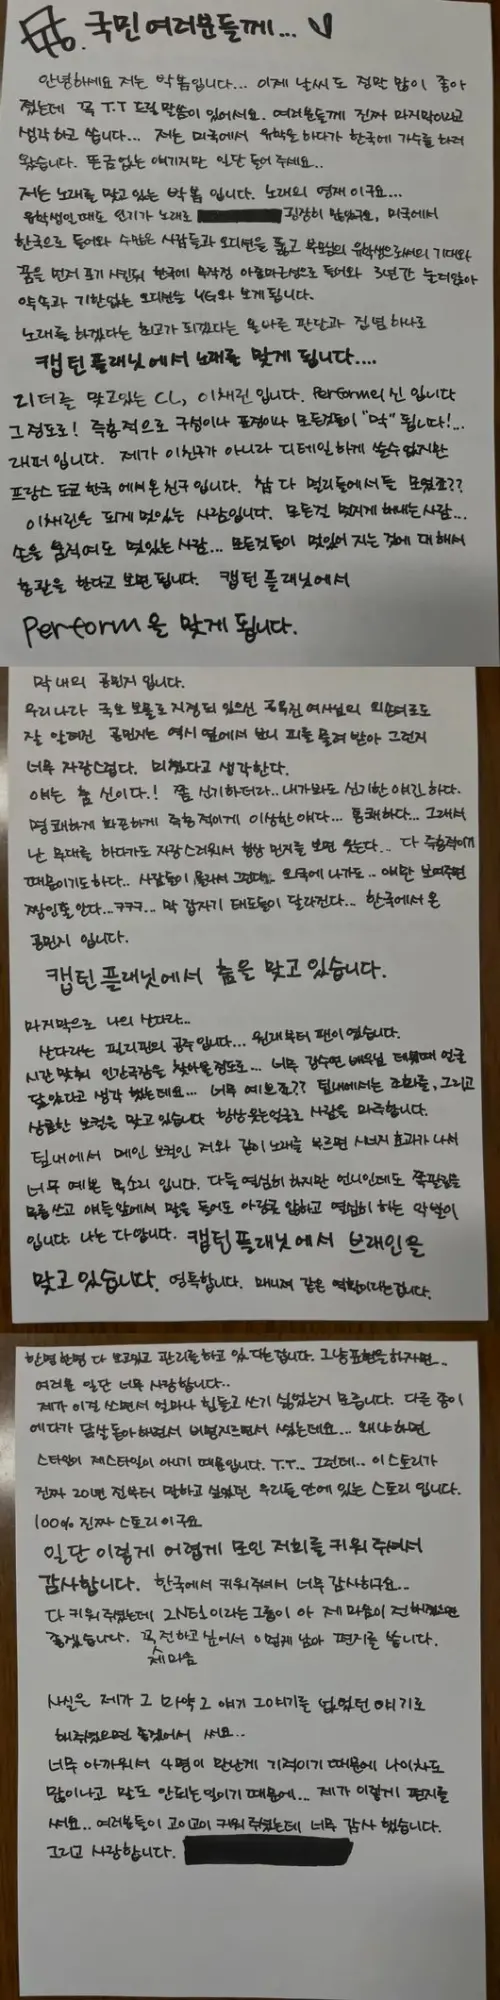 국민여러분들께...
안녕하세요 저는 박봄입니다... 이제 날씨도 정말 많이 좋아
졌는데 꼭 T.T 드릴 말씀이 있어서요. 여러분들께 진짜 마지막이라고
생각하고 씁니다... 저는 미국에서 유학을 하다가 한국에 가수를 하러
왔습니다. 뜬금없는 얘기지만 일단 들어주세요..
저는 노래를 맞고 있는 박봄입니다. 노래의 영재이구요...
유학생인때도 인기가 노래로 굉장히 많았구요, 미국에서
한국으로 들어와 수많은 사람들과 오디션을 뚫고 부모님의 유학생으로써의 기대와
꿈을 먼저 포기 시킨뒤 한국에 무작정 들어와 3년간 눌러앉아
약속과 기한없는 오디션을 YG와 보게 됩니다.
노래를 하겠다는 최고가 되겠다는 올바른 판단과 집념 하나로
캡틴플래닛에서 노래를 맞게 됩니다....
리더를 맞고있는 CL, 이채린입니다. Perform의 신입니다
그정도로! 즉흥적으로 구성이나 표정이나 모든것들이 "막" 됩니다!...
래퍼입니다. 제가 이친구가 아니라 디테일하게 쓸수없지만
프랑스 도쿄 한국에서 온 친구입니다. 참 다 멀리들에서들 모였죠??
이채린은 되게 멋있는 사람입니다. 모든걸 멋지게 해내는 사람...
손을 움직여도 멋있는 사람... 모든것들이 멋있어 지는 것에 대해서
총관을 한다고 보면 됩니다. 캡틴플래닛에서
Perform을 맞게 됩니다.
막내의 공민지입니다.
우리나라 국보 보물로 지정되 있으신 공옥진 여사님의 외손녀로도
잘 알려진 공민지는 역시 옆에서 보니 피를 물려 받아 그런지
너무 자랑스럽다. 미쳤다고 생각한다.
얘는 춤신이다.! 쫌 신기하더라.. 내가봐도 신기한 애긴 하다.
명쾌하게 화끈하게 즉흥적이게 이상한 얘다... 통쾌하다... 그래서
난 무대를 하다가도 자랑스러워서 항상 민지를 보면 웃는다... 다 즉흥적이기
때문이기도하다.. 사람들이 놀라서 그런다.. 외국에 나가도.. 얘만 보여주면
짱인줄 안다...ㅋㅋㅋ... 막 갑자기 태도들이 달라진다... 한국에서 온
공민지입니다.
캡틴플래닛에서 춤을 맞고 있습니다.
마지막으로 나의 산다라...
산다라는 필리핀의 공주입니다... 원래부터 팬이였습니다.
시간 맞춰 인간극장을 찾아볼정도로... 너무 강수연 배우님 데뷔때 얼굴
닮았다고 생각 했는데요... 너무 예쁘죠?? 팀내에서는 조화를, 그리고
상큼한 보컬을 맞고 있습니다 항상웃는얼굴로 사람을 마주합니다.
팀내에서 메인 보컬인 저와 같이 노래를 부르면 시너지 효과가 나서
너무 예쁜 목소리 입니다. 다들 열심히 하지만 언니인데도 쪽팔림을
무릅쓰고 얘들 앞에서 말을 들어도 아랑곳 않하고 열심히 하는 악벌이
입니다. 나는 다 압니다. 캡틴플래닛에서 브레인을
맞고 있습니다. 영특합니다. 매니져 같은 역할이라는겁니다.
한명한명 다 보고있고 관리를하고 있다는겁니다. 그냥 표현을 하자면..
여러분 일단 너무 사랑합니다..
제가 이걸 쓰면서 얼마나 힘들고 쓰기 싫었는지 모릅니다. 다른 종이
에다가 닭살돋아 하면서 비명지르면서 썼는데요... 왜냐하면
스타일이 제스타일이 아니기 때문입니다. T.T... 그런데.. 이스토리가
진짜 20년 전부터 말하고 싶었던 우리들 안에 있는 스토리 입니다.
100% 진짜 스토리이구요
일단 이렇게 어렵게 모인 저희를 키워 주셔서
감사합니다. 한국에서 키워주셔서 너무 감사하구요...
다 키워주셨는데 2NE1이라는 그룹이 아 제 마음이 전해졌으면
좋겠습니다. 꼭 전하고 싶어서 이렇게 남아 편지를 씁니다.
제마음
사실은 제가 그 마약 그 얘기 그이야기를 넘었던 얘기로
해주셨으면 좋겠어서 써요..
너무 아까워서 4명이 만난게 기적이기 때문에 나이차도
많이나고 말도 안되는 일이기 때문에... 제가 이렇게 편지를
써요.. 여러분들이 고이고이 키워주셨는데 너무 감사 했습니다.
그리고 사랑합니다.